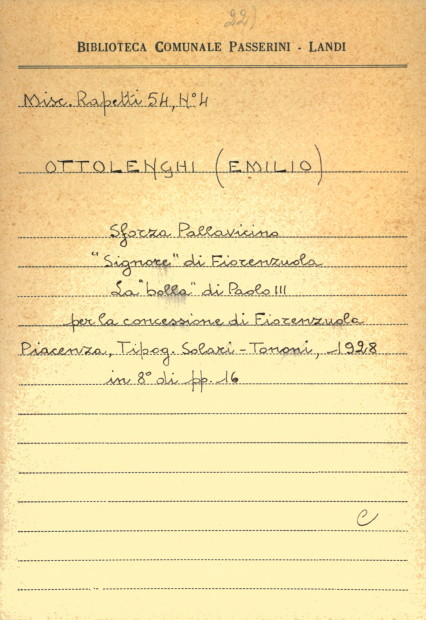 22)
BIBLIOTECA COMUNALE PASSERINI - LANDI
Misc. Rapetti 54, N° 4
OTTOLENGHI (EMILIO)
Sforza Pallavicino
"Signore" di Fiorenzuola
La "bolla" di Paolo III
per la concessione di Fiorenzuola
Piacenza, Tipog. Solari - Tononi, 1928
in 8° di pp. 16
C